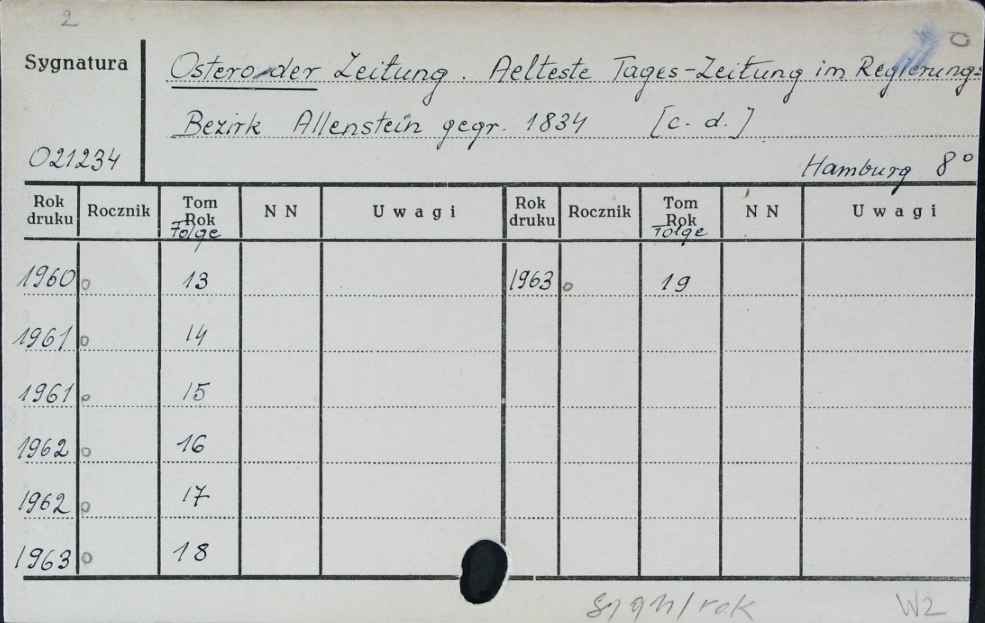 2
Sygnatura
Osteroder Zeitung. Aelteste Tages-Zeitung im Regierungs=
Bezirk Allenstein gegr. 1834 [c. d.]
021234
Hamburg 8°
Rok druku Rocznik Tom Rok Folge N N Uwagi Rok druku Rocznik Tom Rok Folge N N Uwagi
1960 o 13 1963 o 19
1961 o 14
1961 o 15
1962 o 16
1962 o 17
1963 o 18
sygn/rok W2